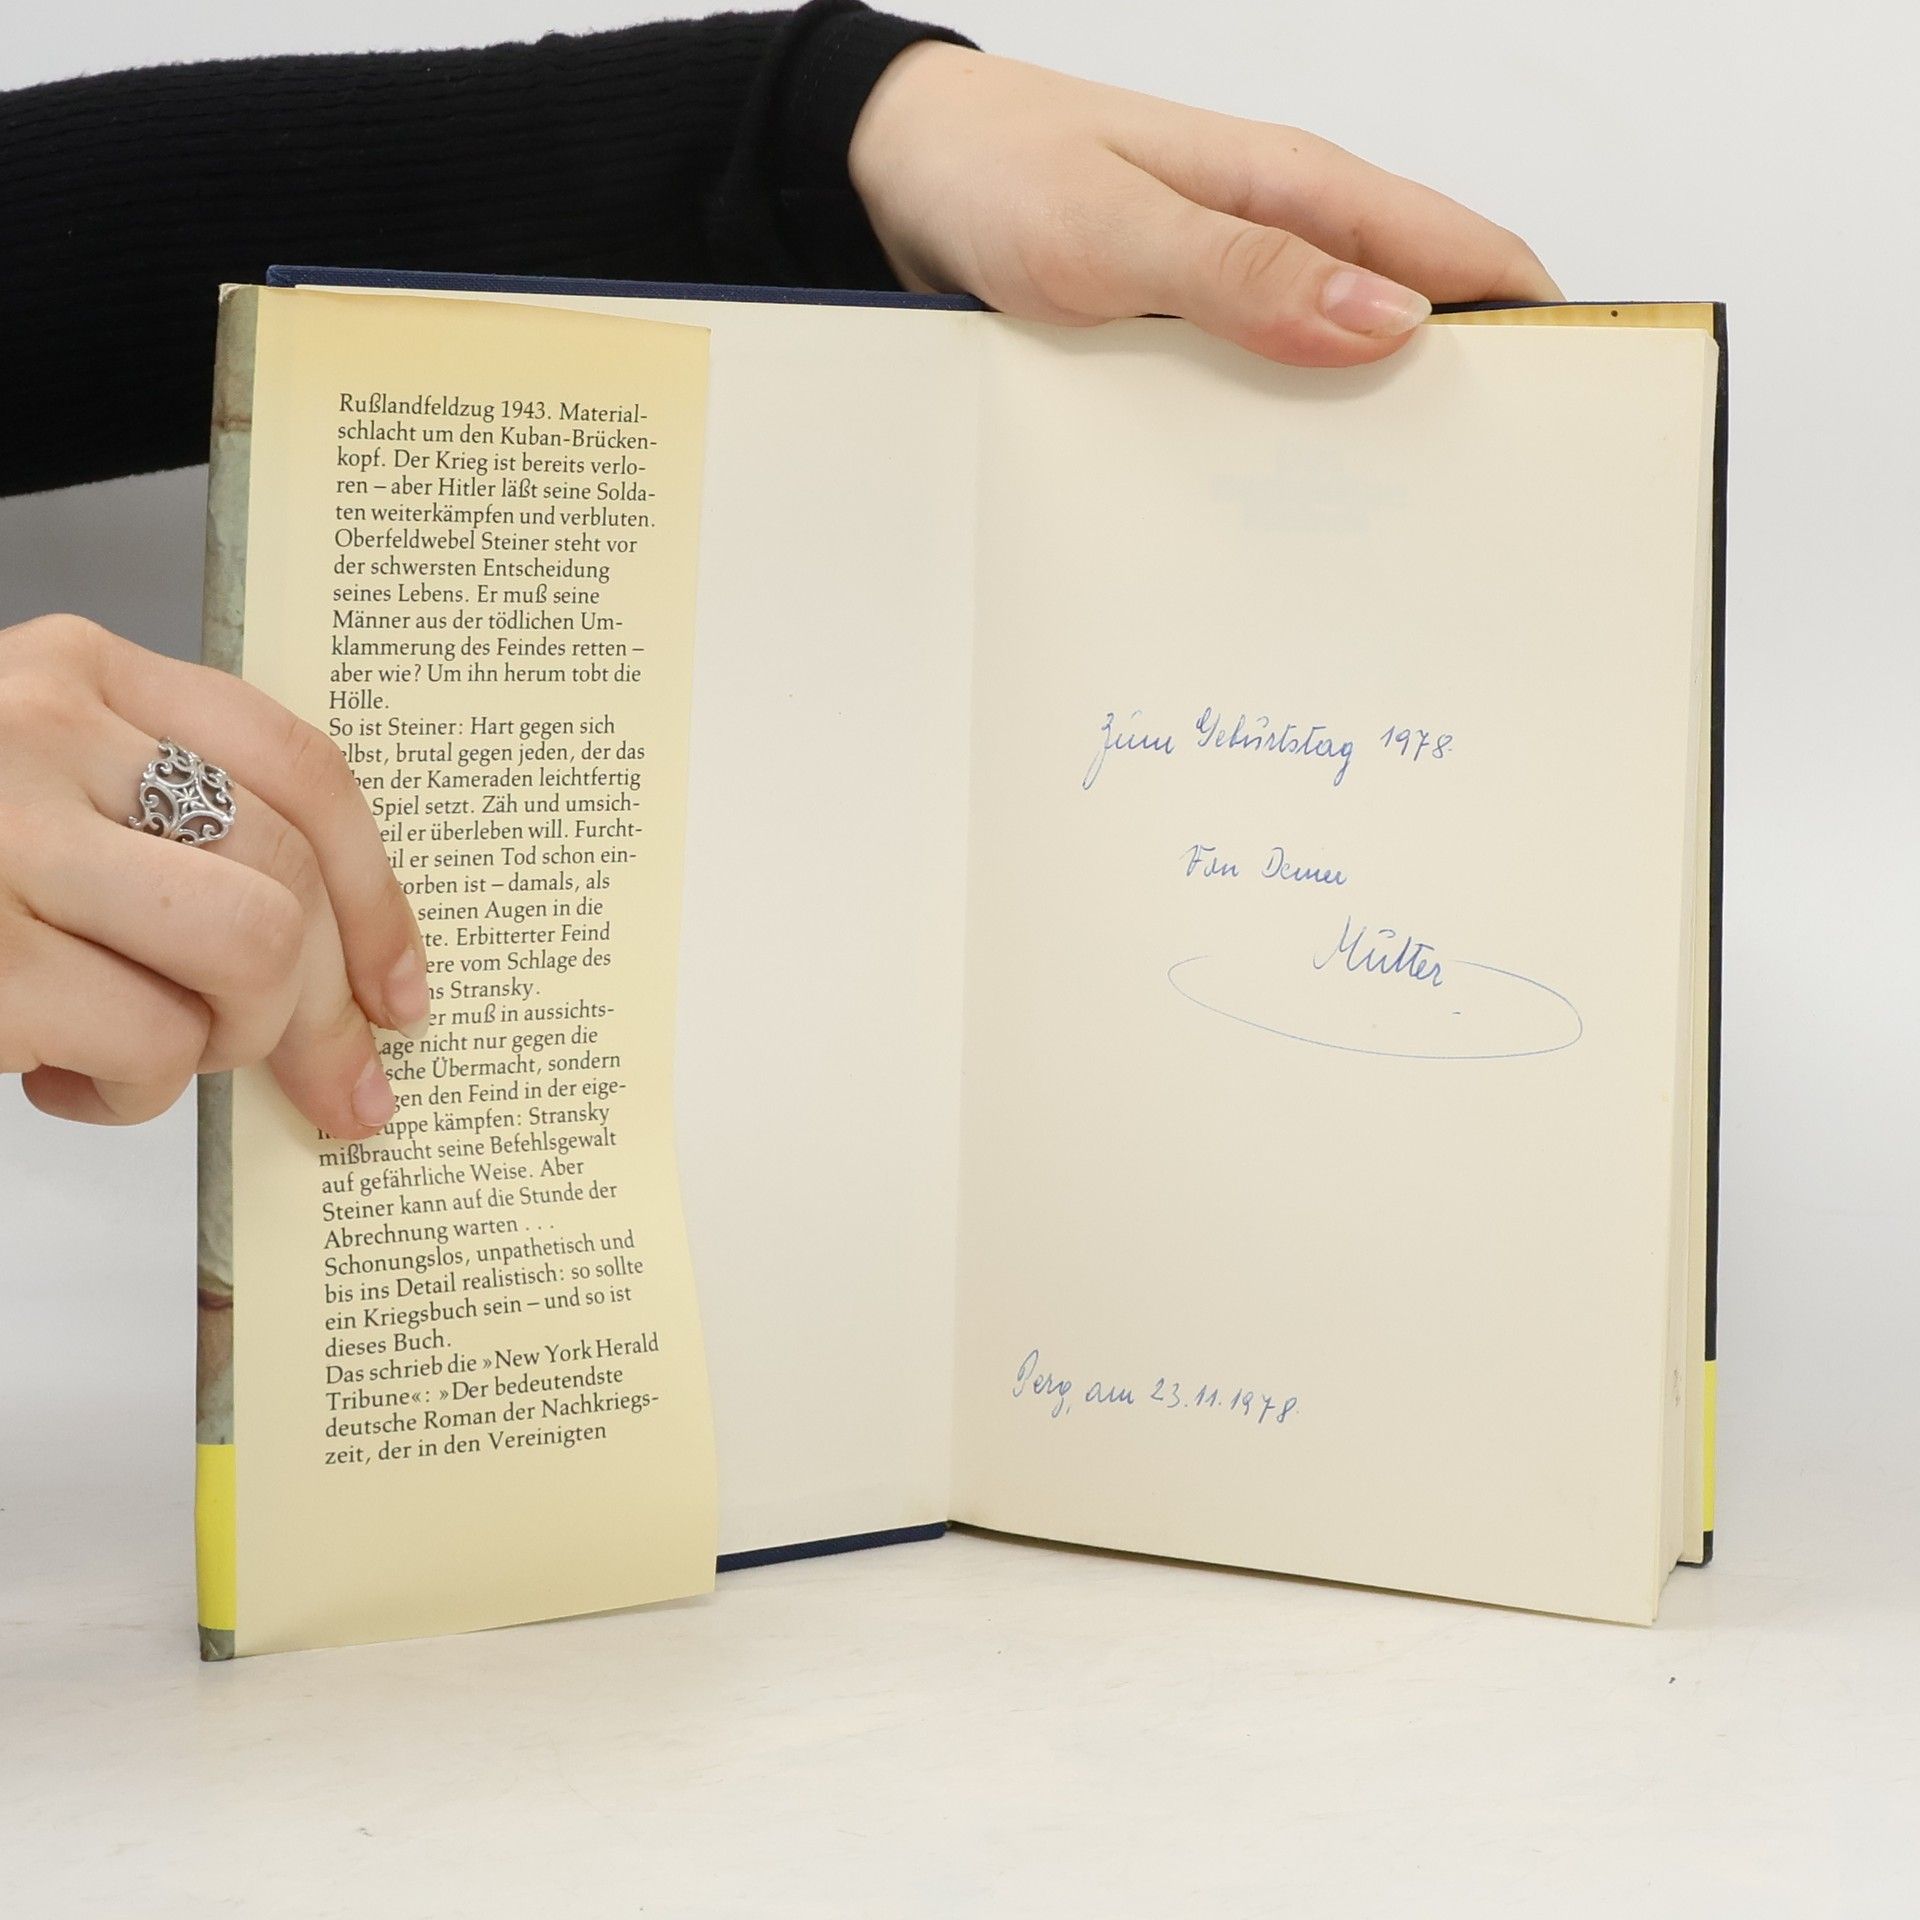 Rußlandfeldzug 1943. Material-
schlacht um den Kuban-Brücken-
kopf. Der Krieg ist bereits verlo-
ren – aber Hitler läßt seine Solda-
ten weiterkämpfen und verbluten.
Oberfeldwebel Steiner steht vor
der schwersten Entscheidung
seines Lebens. Er muß seine
Männer aus der tödlichen Um-
klammerung des Feindes retten –
aber wie? Um ihn herum tobt die
Hölle.
So ist Steiner: Hart gegen sich
elbst, brutal gegen jeden, der das
ben der Kameraden leichtfertig
Spiel setzt. Zäh und umsich-
eil er überleben will. Furcht-
il er seinen Tod schon ein-
orben ist – damals, als
seinen Augen in die
te. Erbitterter Feind
ere vom Schlage des
ns Stransky.
er muß in aussichts-
Lage nicht nur gegen die
sche Übermacht, sondern
gen den Feind in der eige-
uppe kämpfen: Stransky
mißbraucht seine Befehlsgewalt
auf gefährliche Weise. Aber
Steiner kann auf die Stunde der
Abrechnung warten . . .
Schonungslos, unpathetisch und
bis ins Detail realistisch: so sollte
ein Kriegsbuch sein – und so ist
dieses Buch.
Das schrieb die »New York Herald
Tribune«: »Der bedeutendste
deutsche Roman der Nachkriegs-
zeit, der in den Vereinigten
Zum Geburtstag 1978.
Von Deiner
Mutter
Perg, am 23.11.1978.